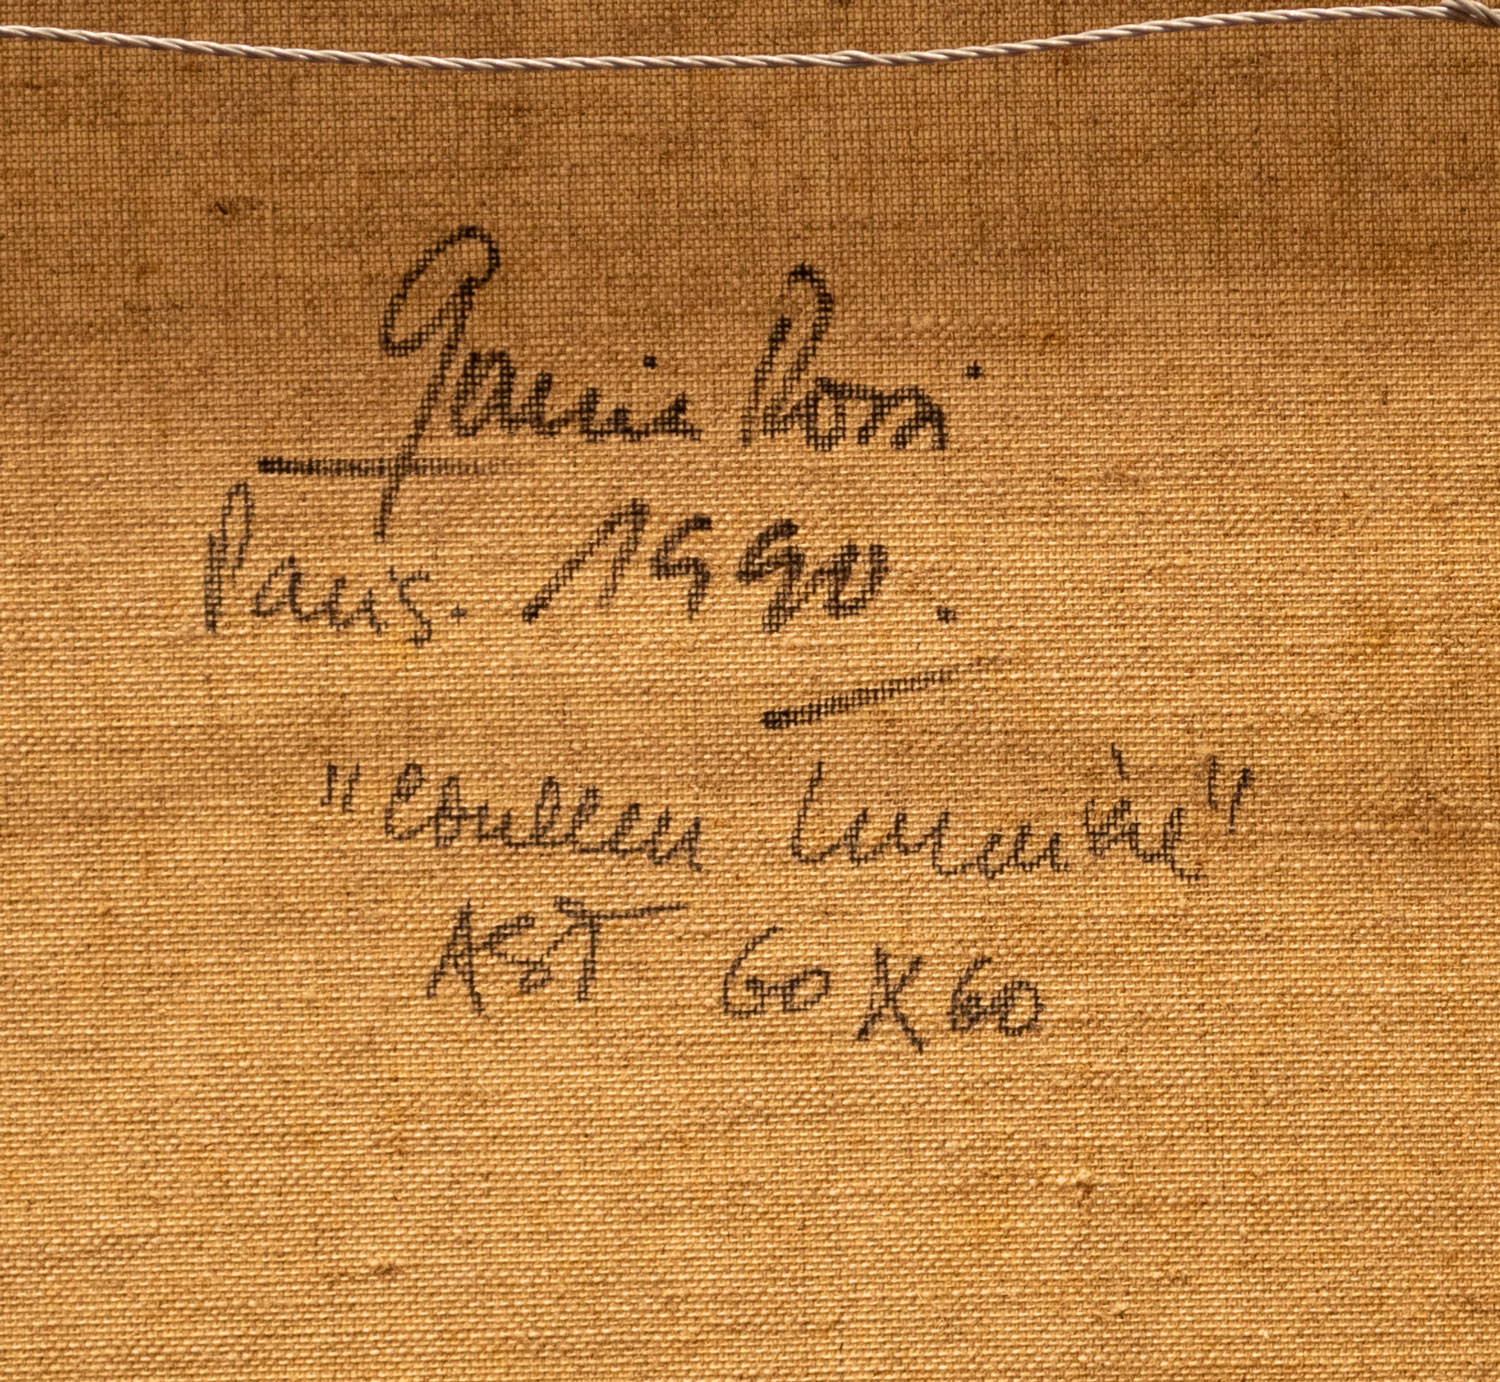 Rossi
Paris. 1990.
"Couleur Lumière"
AST 60 X 60